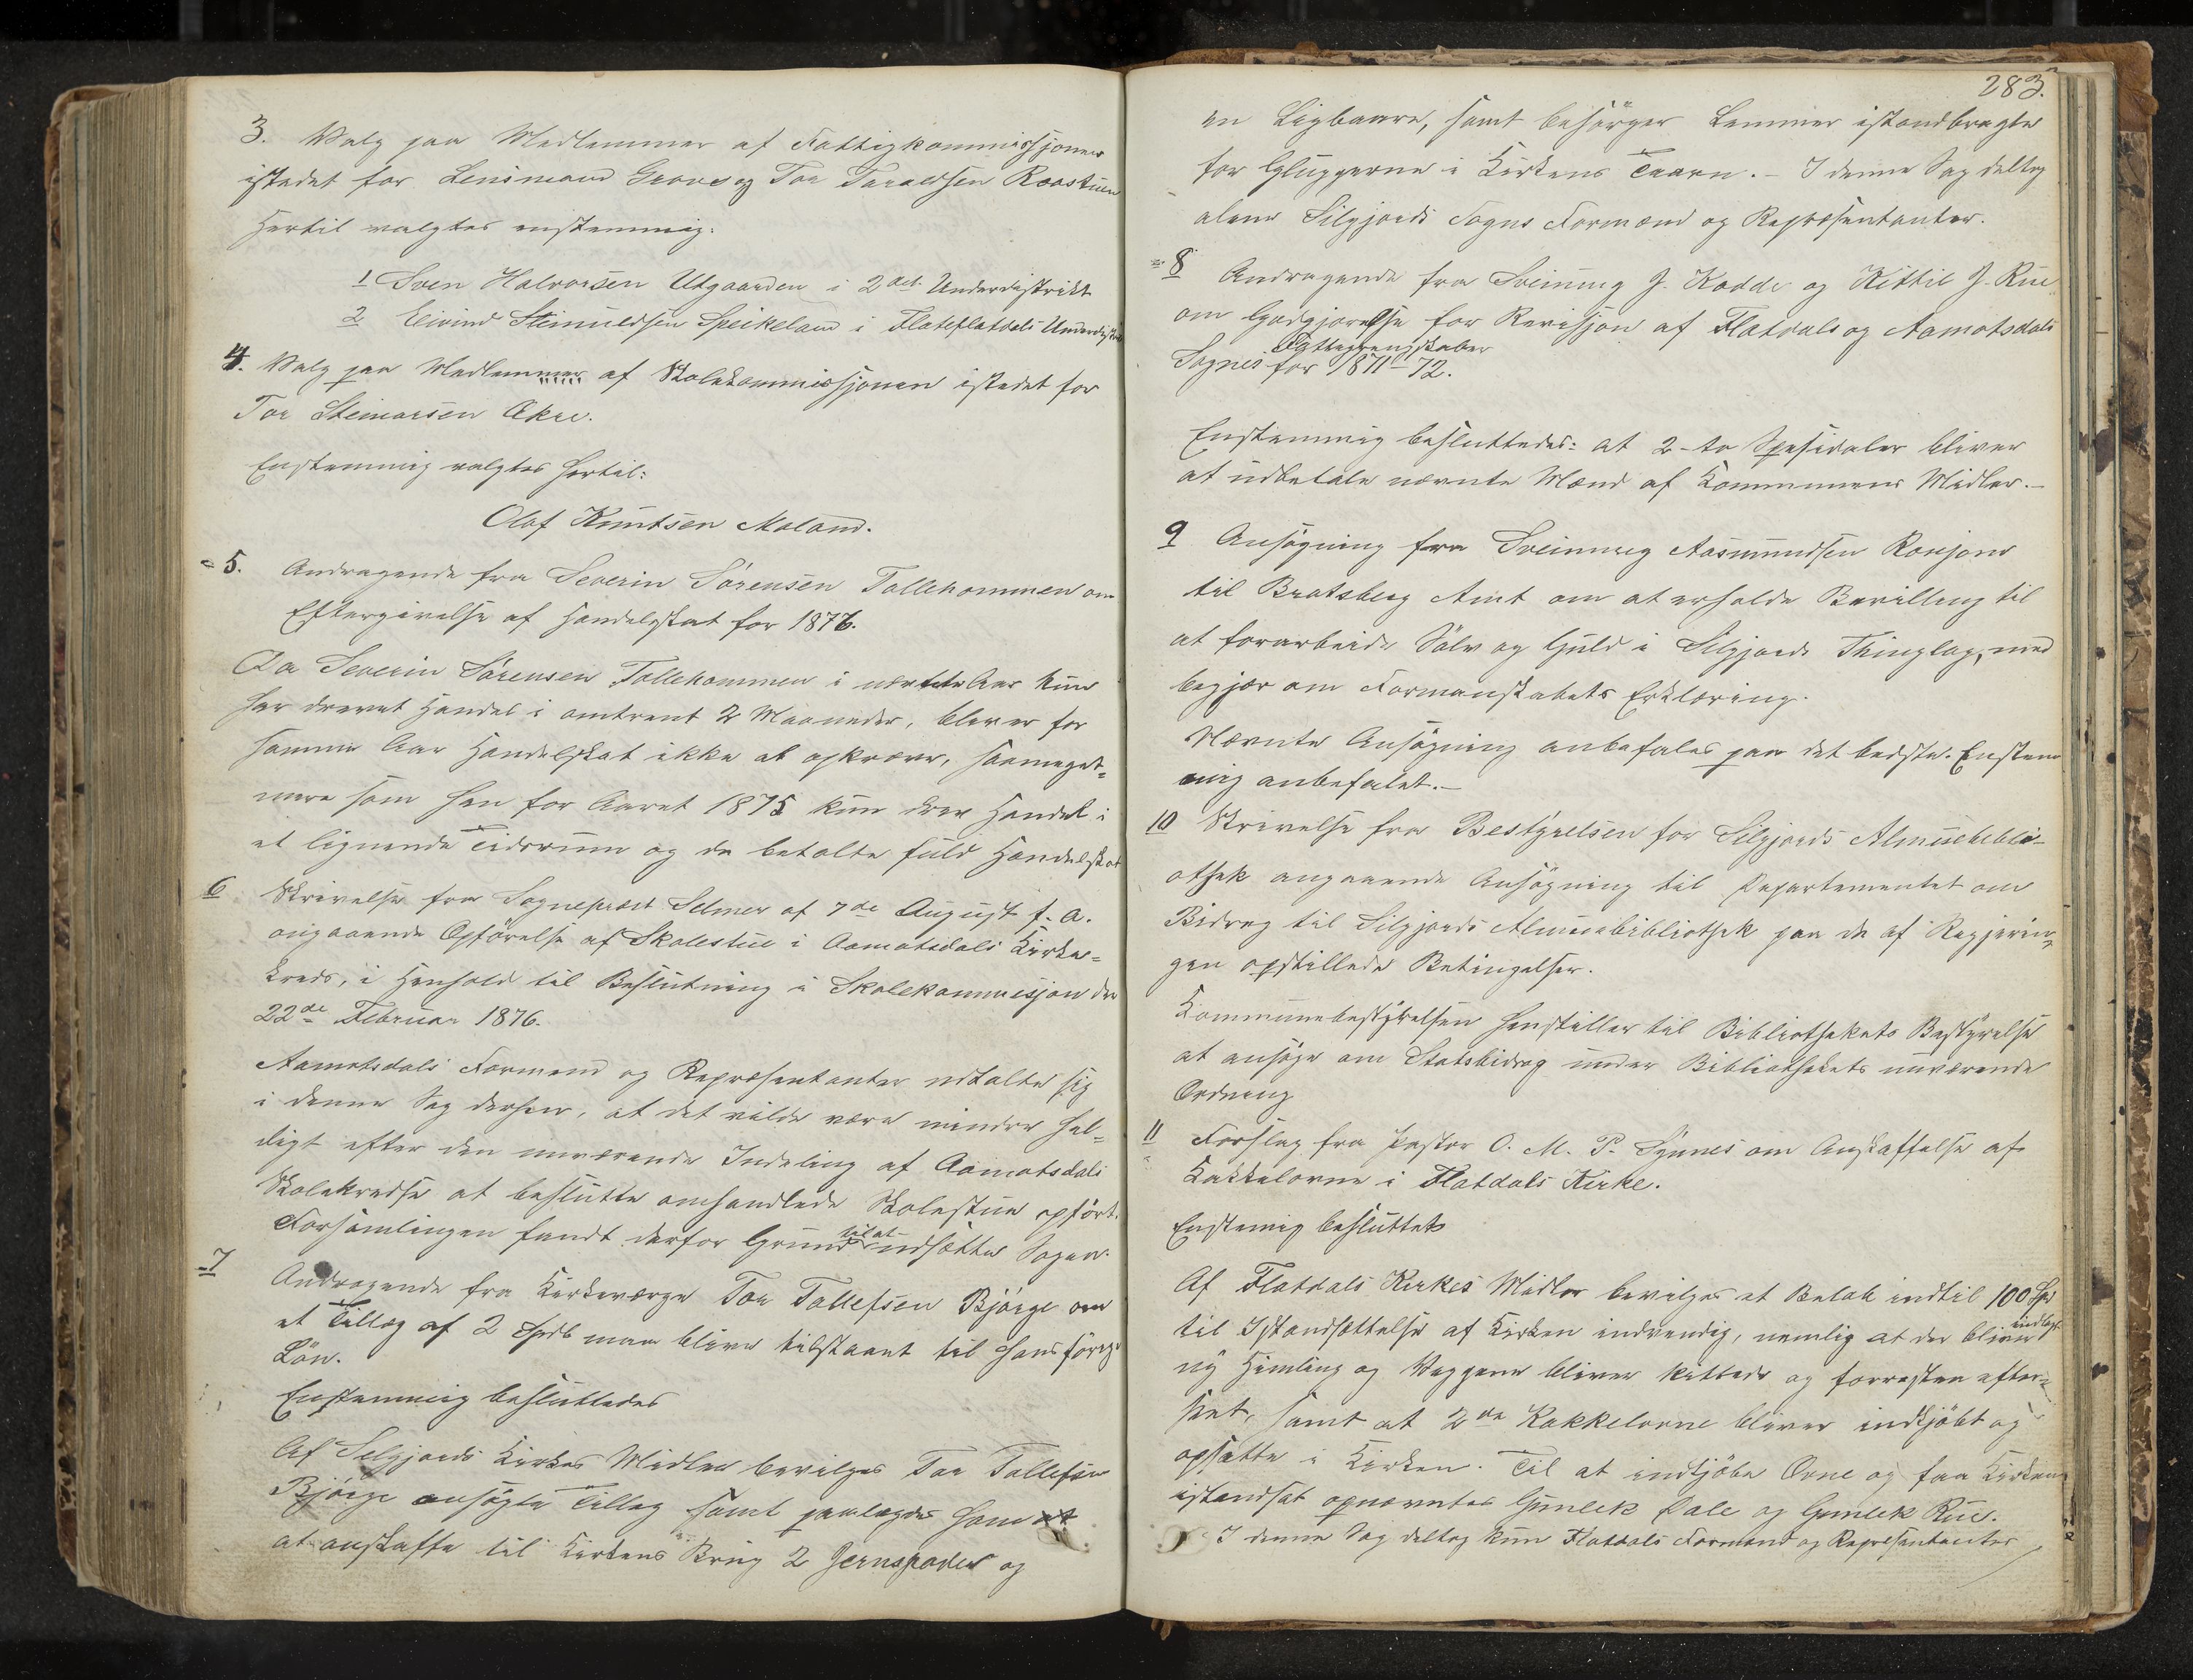 3. Valg paa Medlemmer af Fattigkommissjonen
istedet for Lensmand Grave og Tor Taraldsen Roastuen
Hertil valgtes enstemmig:
1 Sven Halvorsen Utgaarden i 2det Underdistrikt
2 Eivind Steinuldsen Speikeland i Flatefladals Underdistrikt
4. Valg paa Medlemmer af Skolekommissjonen istedet for
Tor Steinarsen Ækre.
Enstemmig valgtes hertil:
Olaf Knutsen Moland.
5. Andragende fra Severin Sørensen Tallekommen om
Eftergivelse af Handelsskat for 1876.
Da Severin Sørensen Tallekommen i nævnte Aar kun
har drevet Handel i omtrent 2 Maaneder, bliver for
samme Aar Handelskat ikke at opkræve, saameget-
mere som han for Aaret 1875 kun drev Handel i
et lignende Tidsrum og da betalte fuld Handelskat
6 Skrivelse fra Sognepræst Selmer af 7de August f. A.
angaaende Opførelse af Skolestue i Aamotsdals Kirke-
kreds, i Henhold til Beslutning i Skolekommisjon den
22de Februar 1876.
Aamotsdals Formænd og Repræsentanter udtalte sig
i denne Sag derhen, at det vilde være mindre hel-
digt efter den nuværende Indeling af Aamotsdals
Skolekredse at beslutte omhandlede Skolestue opført.
Forsamlingen fandt derfor Grund til at udsætte Sagen.
7 Andragende fra Kirkeværge Tor Tollefsen Bjørge om
et Tillæg af 2 Spdlr maa blive tilstaaet til hans førige
Løn.
Enstemmig besluttedes
Af Selgjords Kirkes Midler bevilges Tor Tollefsen
Bjørge ansøgte Tillæg samt paalægdes ham
at anskaffe til Kirkens Brug 2 Jernspader og
283.
en Ligbaare, samt besørger Lemmer istandbragte
for Gluggerne i Kirkens Taarn. - I denne Sag deltog
alene Silgjords Sogns Formænd og Repræsentanter.
8 Andragende fra Sveinung J. Kodde og Kittil J. Rue
om Godgjørelse for Revisjon af Flatdals og Aamotsdals
Sognes Fattegrenskaber for 1871-72.
Enstemmig besluttedes: at 2-to Spesidaler bliver
at udbetale nævnte Mænd af Kommunens Midler.-
9 Ansøgning fra Sveinung Aasmundsen Rosjoro
til Bratsberg Amt om at erholde Bevilling til
at forarbeide Sølv og Guld i Silgjords Thinglag, med
begjær om Formanskabets Erklæring.
Nævnte Ansøgning anbefales paa det bedste. Enstem
mig anbefalet.-
10 Skrivelse fra Bestyrelsen for Silgjords Almuebibli-
othek angaaende Ansøgning til Departementet om
Bidrag til Silgjords Almuebibliothek paa de af Regjerin-
gen opstillede Betingelser.
Kommunebestyrelsen henstiller til Bibliothekets Bestyrelse
at ansøge om Statsbidrag under Bibliothekets nuværende
Ordning
11 Forslag fra Pastor O. M. P. Synnes om Anskaffelse af
Kakkelovne i Flatdals Kirke.
Enstemig besluttet
Af Flatdals Kirkes Midler bevilges et Beløb indtil 100 Spd
til Istandsættelse af Kirken indvendig, nemlig at der bliver indlagt
ny Himling og Væggene bliver kittede og forresten efter-
seet, samt at 2de Kakkelovne bliver indkjøbt og
opsatte i Kirken. Til at indkjøbe Ovne og faa Kirken
istandsat opnævntes Gunlek Dale og Gunlek Rue.
I denne Sag deltog kun Flatdals Formænd og Repræsentanter